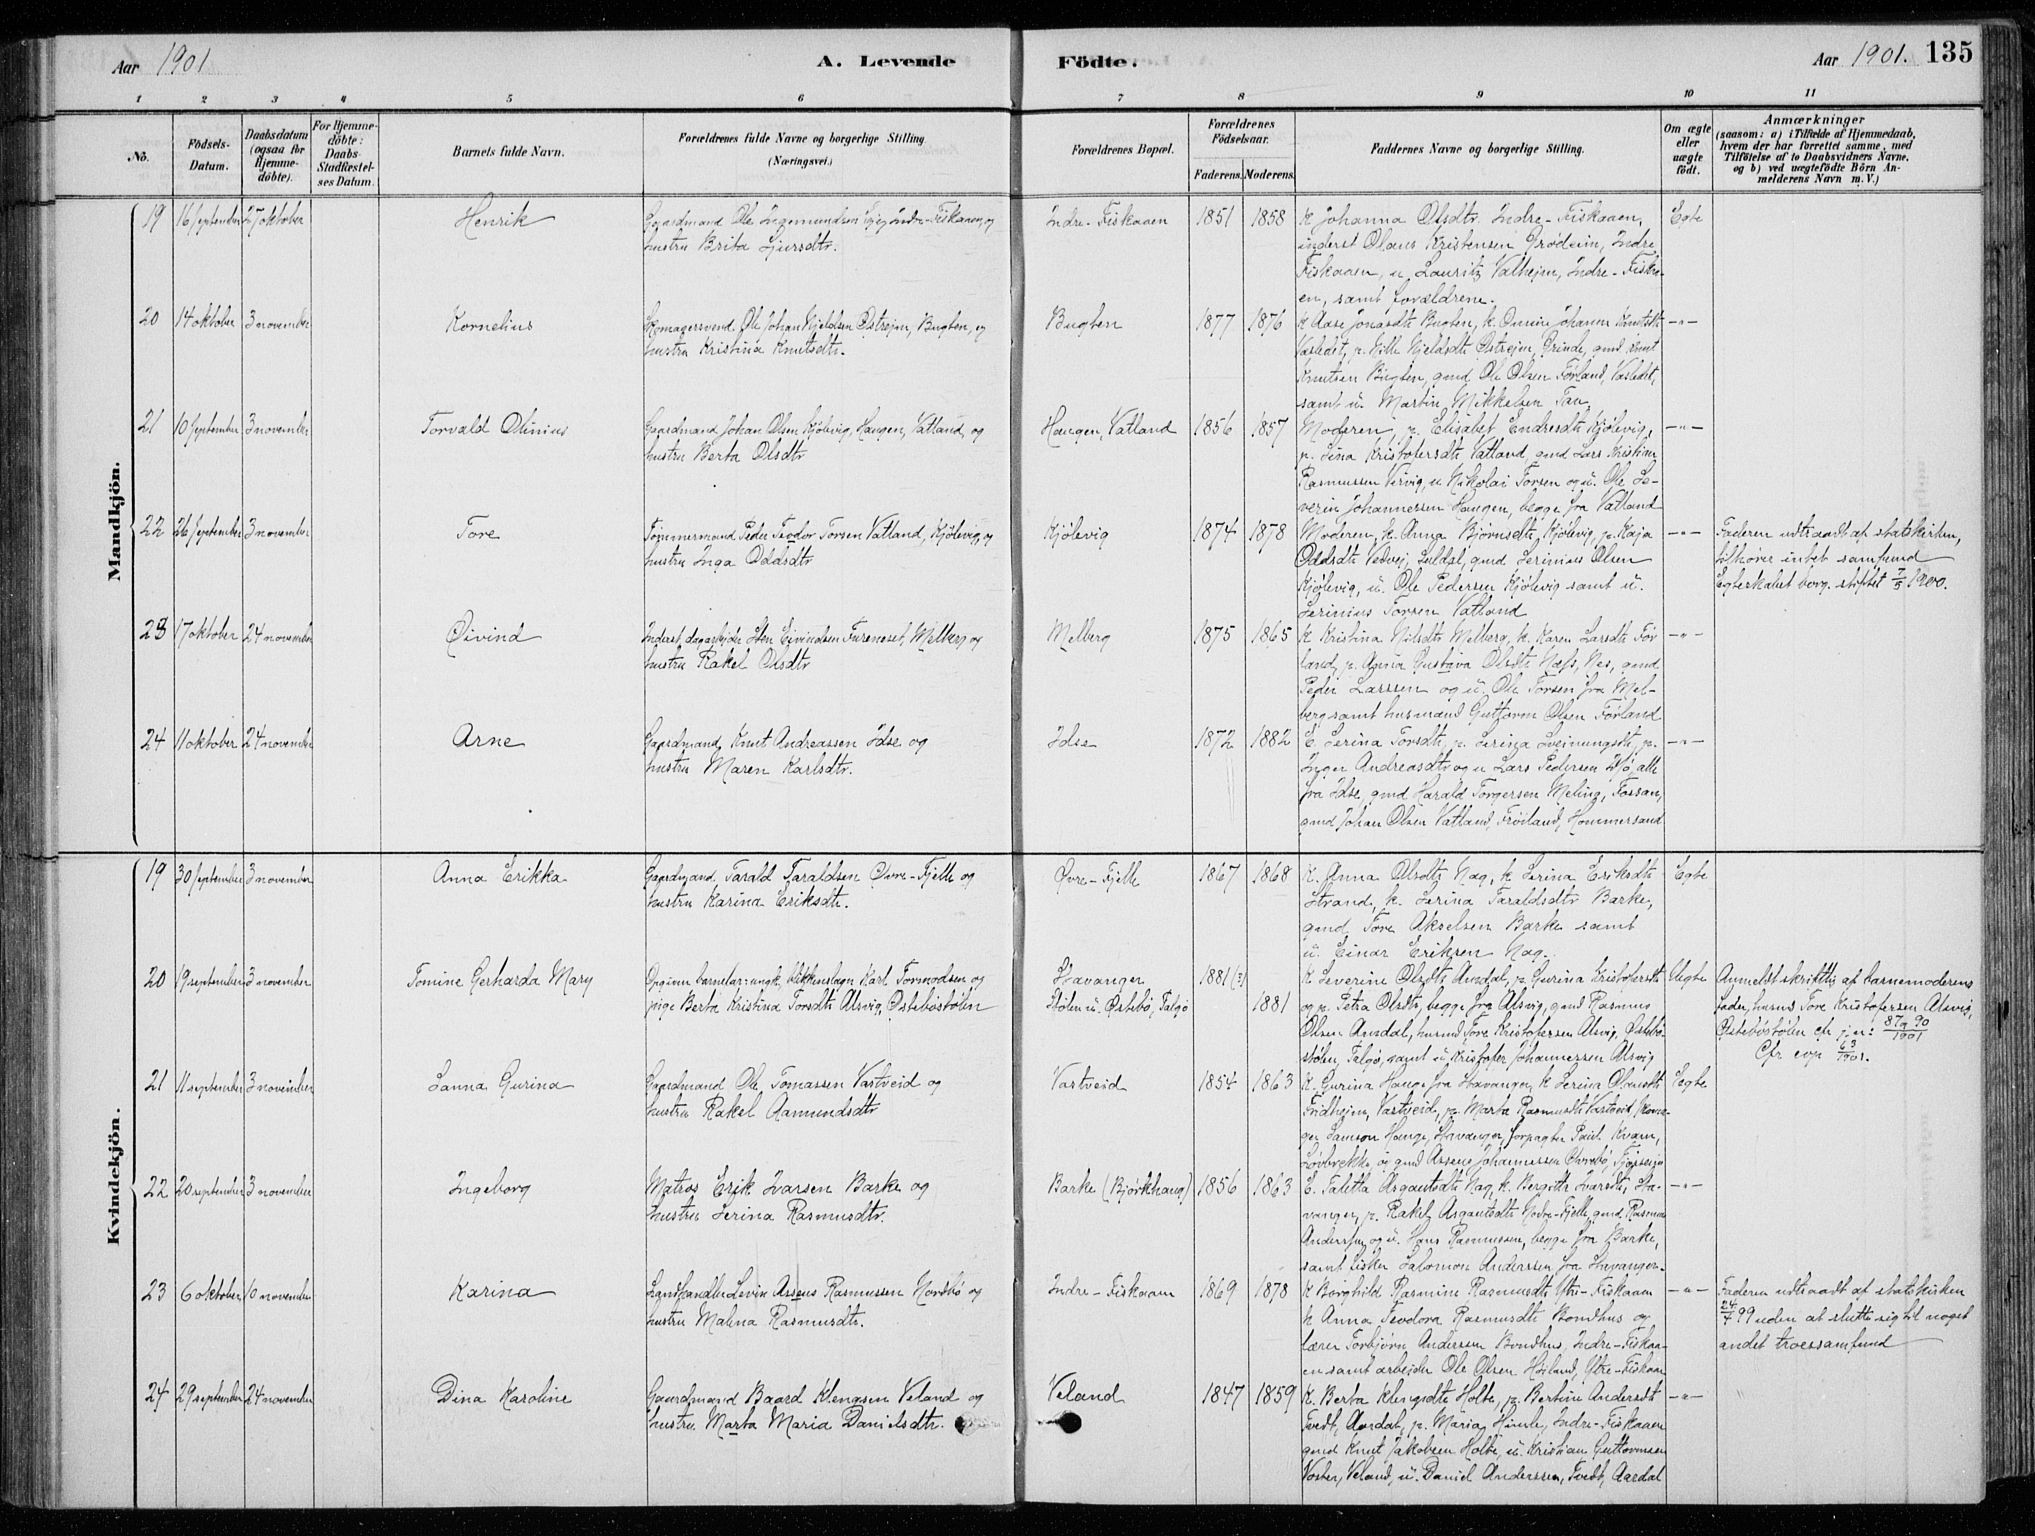 Aar 1901
A. Levende
Födte.
Aar 1901. 135
1 2 3 4 5 6 7 8 9 10 11
No.
Födsels-Datum.
Daabsdatum (ogsaa for Hjemme-döbte).
For Hjemme-döbte: Daabs-Stadfæstel-ses Datum.
Barnets fulde Navn.
Forældrenes fulde Navne og borgerlige Stilling. (Næringsvei.)
Forældrenes Bopæl.
Forældrenes Födselsaar. Faderens. Moderens.
Faddernes Navne og borgerlige Stilling.
Om ægte eller uægte födt.
Anmærkninger
(saasom: a) i Tilfælde af Hjemmedaab, hvem der har forrettet samme, med Tilföielse af to Daabsvidners Navne, og b) ved uægtefödte Börn Anmelderens Navn m. V.)
Mandkjön.
19 16 september 27 oktober Henrik
Gaardmand Ole Ingemundsen Indre-Fiskaaen, og
hustru Brita Sjursdtr.
Indre-Fiskaaen 1851 1858
K Johanna Olsdtr. Indre-Fiskaaen,
inderst Olaus Kristensen Grødeim, Indre
Fiskaaen, u. Lauritz Valheim, Indre-Fiskaa-
en, samt forældrene.
Egte
20 14 oktober 3 november Kornelius
Skomagersvend Ole Johan Kjeldsen Østrejm, Bugten, og
hustru Kristina Knutsdtr.
Bugten 1877 1876
K Aase Jonasdtr Bugten, k. Johanna Knutsdtr
p. Kjeldsdtr Østrejm, Grinde, gmd Knut
Knutsen Bugten, gmd Ole Olsen Førland,
samt u. Martin Mikkelsen Tau
—"—
21 10 september 3 november Torvald Olinius
Gaardmand Johan Olsen Kjølevig, Haugen, Vatland, og
hustru Berta Olsdtr
Haugen, Vatland 1856 1857
Moderen, p. Elisabet Endresdtr Kjølevig,
p. Lina Kristofersdtr Vatland, gmd Lars Kristian
Rasmussen Vervig, u. Nikolai Torsen og u. Ole Se-
verin Johannessen Haugen, begge fra Vatland
—"—
22 26 september 3 november Tore
Tømmermand Peder Teodor Torsen Vatland, Kjølevig, og
hustru Inga Oddsdtr
Kjølevig 1874 1878
Moderen, k. Anna Bjørnsdtr Kjølevig, p. Kaja
Oddsdtr Vedvej, Suldal, gmd Serinius Olsen
Kjølevig, u. Ole Pedersen Kjølevig samt u.
Serinius Torsen Vatland
—"—
Faderen udtraadt af statskirken,
tilhører intet samfund
Egteskabet borg. stiftet 7/5 1900.
23 17 oktober 24 november Øivind
Inderst, dagarbejder Sten Eivindsen Fureneset, Melberg, og
hustru Rakel Olsdtr
Melberg 1875 1865
K Kristina Nilsdtr Melberg, k. Karen Larsdtr Før
land, p. Anna Gustava Olsdtr Næss, Nes, gmd
Peder Larssen og u. Ole Torsen fra Mel-
berg samt husmand Guttorm Olsen Førland
—"—
24 11 oktober 24 november Arne
Gaardmand Knut Andreassen Idse og
hustru Maren Karlsdtr.
Idse 1872 1882
E. Serina Torsdtr, p. Serina Sveinungsdtr, p.
Inger Andreasdtr og u Lars Pedersen alle
fra Idse, gmd Harald Torgersen Meling, Fossan,
gmd Johan Olsen Vatland, Frøiland, Hommersand
—"—
Kvindekjön.
19 30 september 3 november Anna Erikka
Gaardmand Tarald Taraldsen Øvre-Fjelle og
hustru Karina Eriksdtr.
Øvre-Fjelle 1867 1868
K. Anna Olsdtr Nag, k Serina Eriksdtr
Strand, k. Serina Taraldsdtr Barke,
gmd Tore Akselsen Barke samt
u. Einar Eriksen Nag.
Egte
20 19 september 3 november Tomine Gerharda Mary
Opgiven barnefar: ungk. blikkenslager Karl Tormodsen og
pige Berta Kristina Torsdtr Alsvig, Østebøstølen
Stavanger
Stølen u. Østebø, Talgø
1881 (3) 1881
K Severine Olsdtr Amdal, p. Gurina Kristofersdtr
og p. Petra Olsdtr, begge fra Alsvig, gmd Rasmus
Olsen Amdal, husmd Tore Kristofersen Alsvig, Østebø-
stølen, Talgø, samt u. Kristofer Johannessen Alsvig
Uegte
Anmeldt skriftlig af barnemoderens
fader, husmd Tore Kristofersen Alsvig,
Østebøstølen cfr jn: 87 og 90/1901
Cfr cop 63/1901.
21 11 september 3 november Sanna Gurina
Gaardmand Ole Tomassen Vastveid og
hustru Rakel Aamundsdtr
Vastveid 1854 1863
K. Gurina Hauge fra Stavanger, k Serina Olausdtr
Fridhejm, Vastveid, p. Marta Rasmusdtr Vastveid, skoma-
ger Samson Hauge, Stavanger, forpagter Paul Kvam,
og gmd Assens Johannessen
Egte
22 20 september 3 november Ingeborg
Matros Erik Ivarsen Barke og
hustru Serina Rasmusdtr.
Barke (Bjørkhaug) 1856 1863
E. Taletta Asgautsdtr Nag, k. Bergitte Ivarsdtr, Sta-
vanger, p. Rakel Asgautsdtr Nedre-Fjelle, gmd Rasmus
Andersen og u. Hans Rasmussen, begge fra Barke,
samt fisker Salomon Anderssen fra Stavanger
—"—
23 6 oktober 10 november Karina
Landhandler Levin Assens Rasmussen Nordbø og
hustru Malina Rasmusdtr.
Indre-Fiskaaen 1869 1878
K Borghild Rasmine Rasmusdtr Ytre-Fiskaaen
k Anna Teodora Rasmusdtr Bondhus og
lærer Torbjørn Andersen Bondhus, Indre-Fiskaa-
en samt arbejder Ole Olsen Høiland, Ytre-Fiskaaen
—"—
Faderen udtraadt af statskirken
24/7 99 uden at slutte sig til noget
andet troessamfund
24 29 september 24 november Dina Karoline
Gaardmand Baard Klengsen Veland og
hustru Marta Maria Danielsdtr.
Veland 1847 1859
K. Berta Klengsdtr Holta, p. Bertine Andersdtr
Tvedt, Aardal, p. Maria Himle, Indre-Fiskaaen
gmd Knut Jakobsen Holte, u. Kristian Guttormsen
Voster, Veland, u. Daniel Anderssen, Tvedt, Aardal
—"—